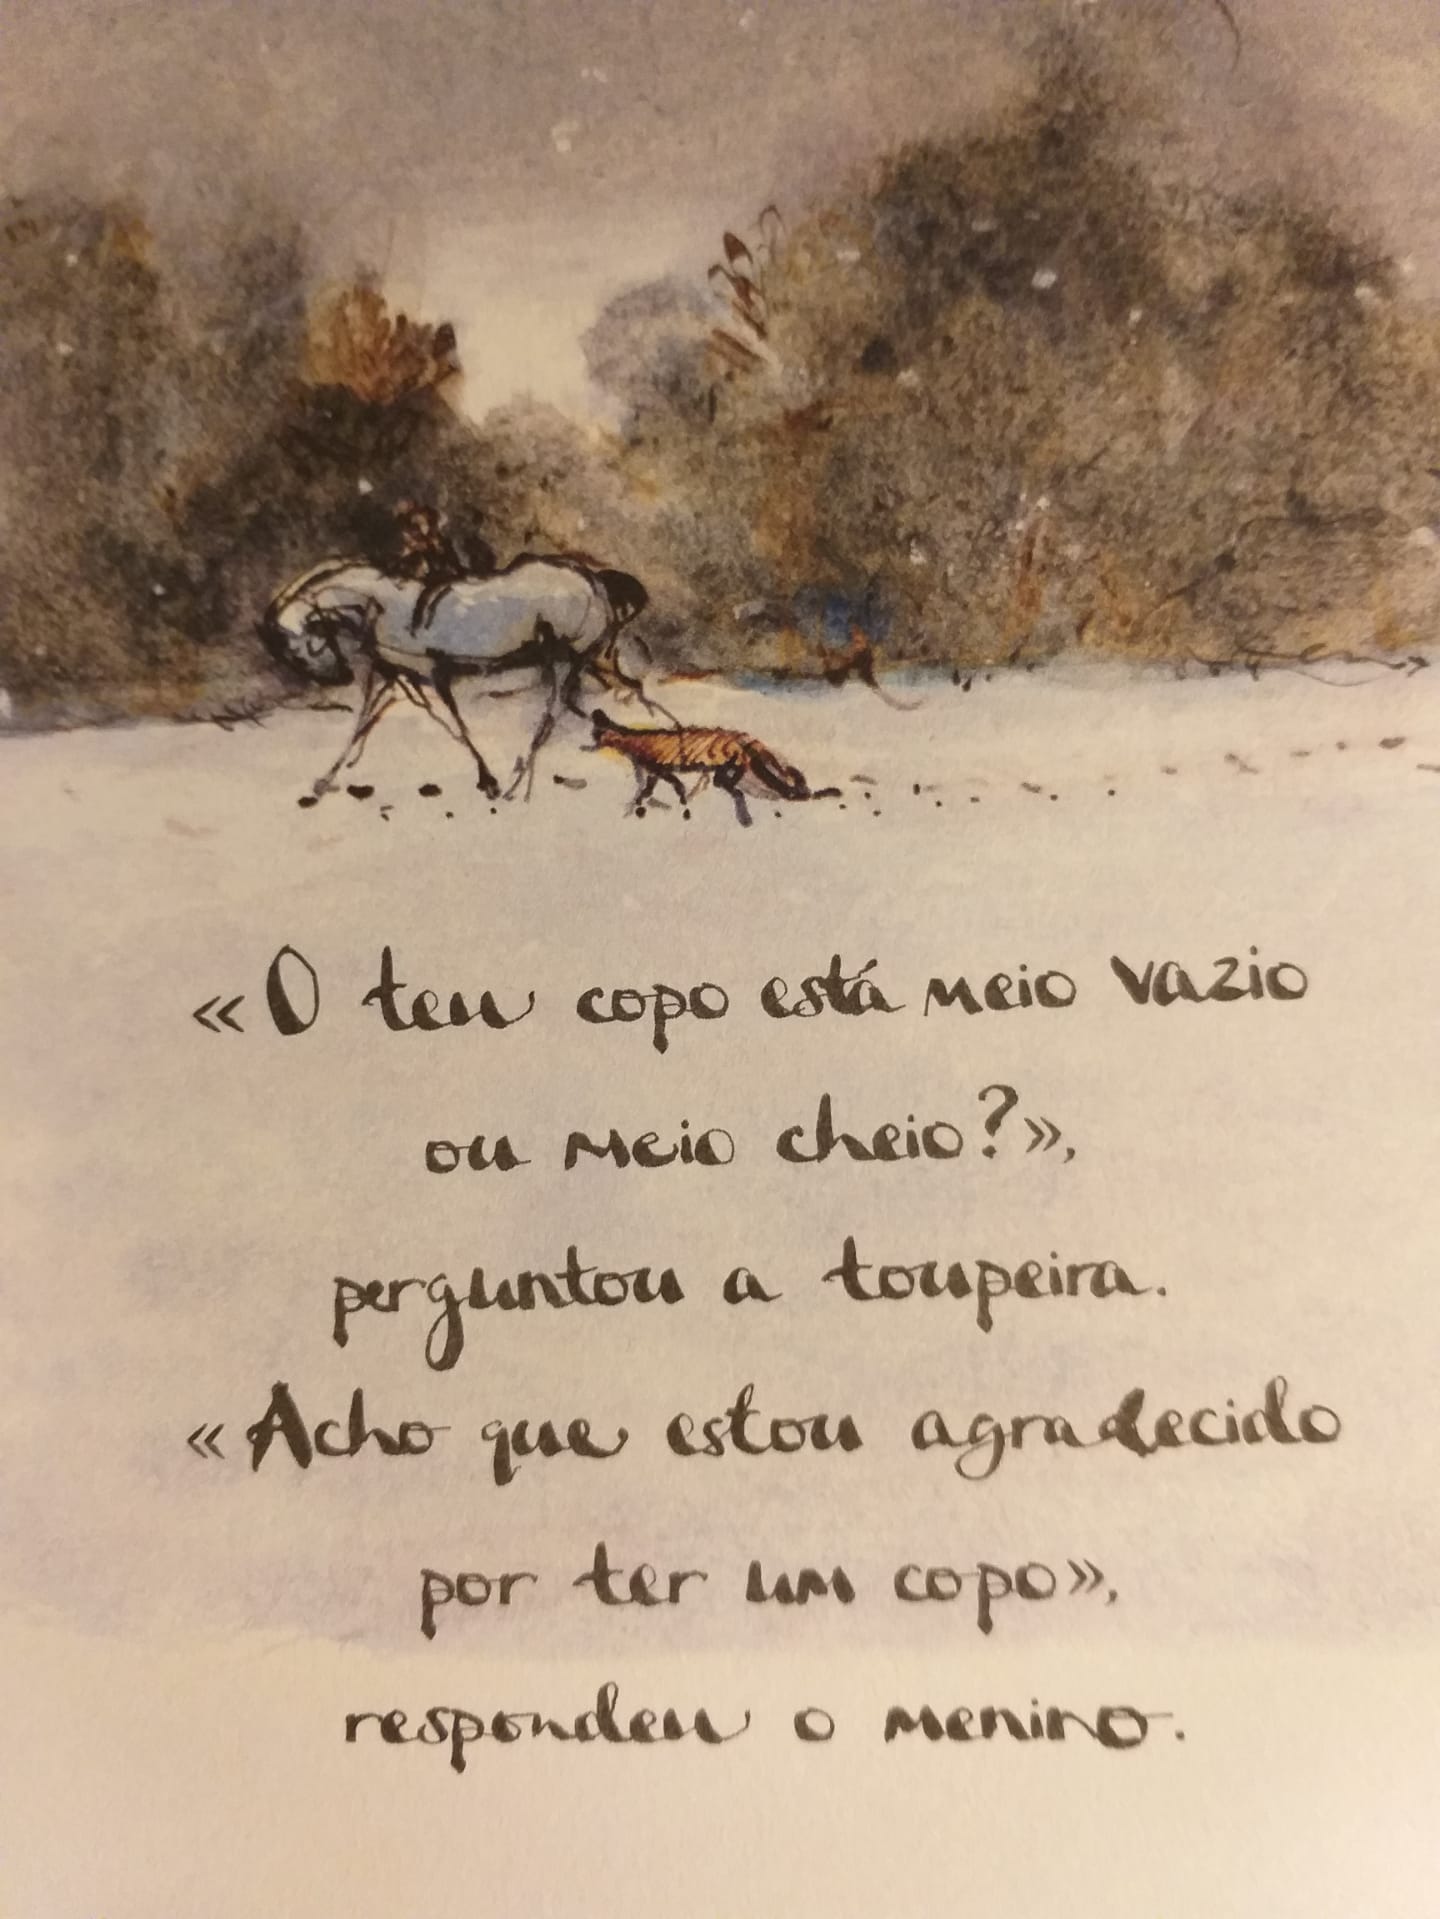 «O teu copo está meio vazio
ou meio cheio?»,
perguntou a toupeira.
«Acho que estou agradecido
por ter um copo»,
respondeu o menino.